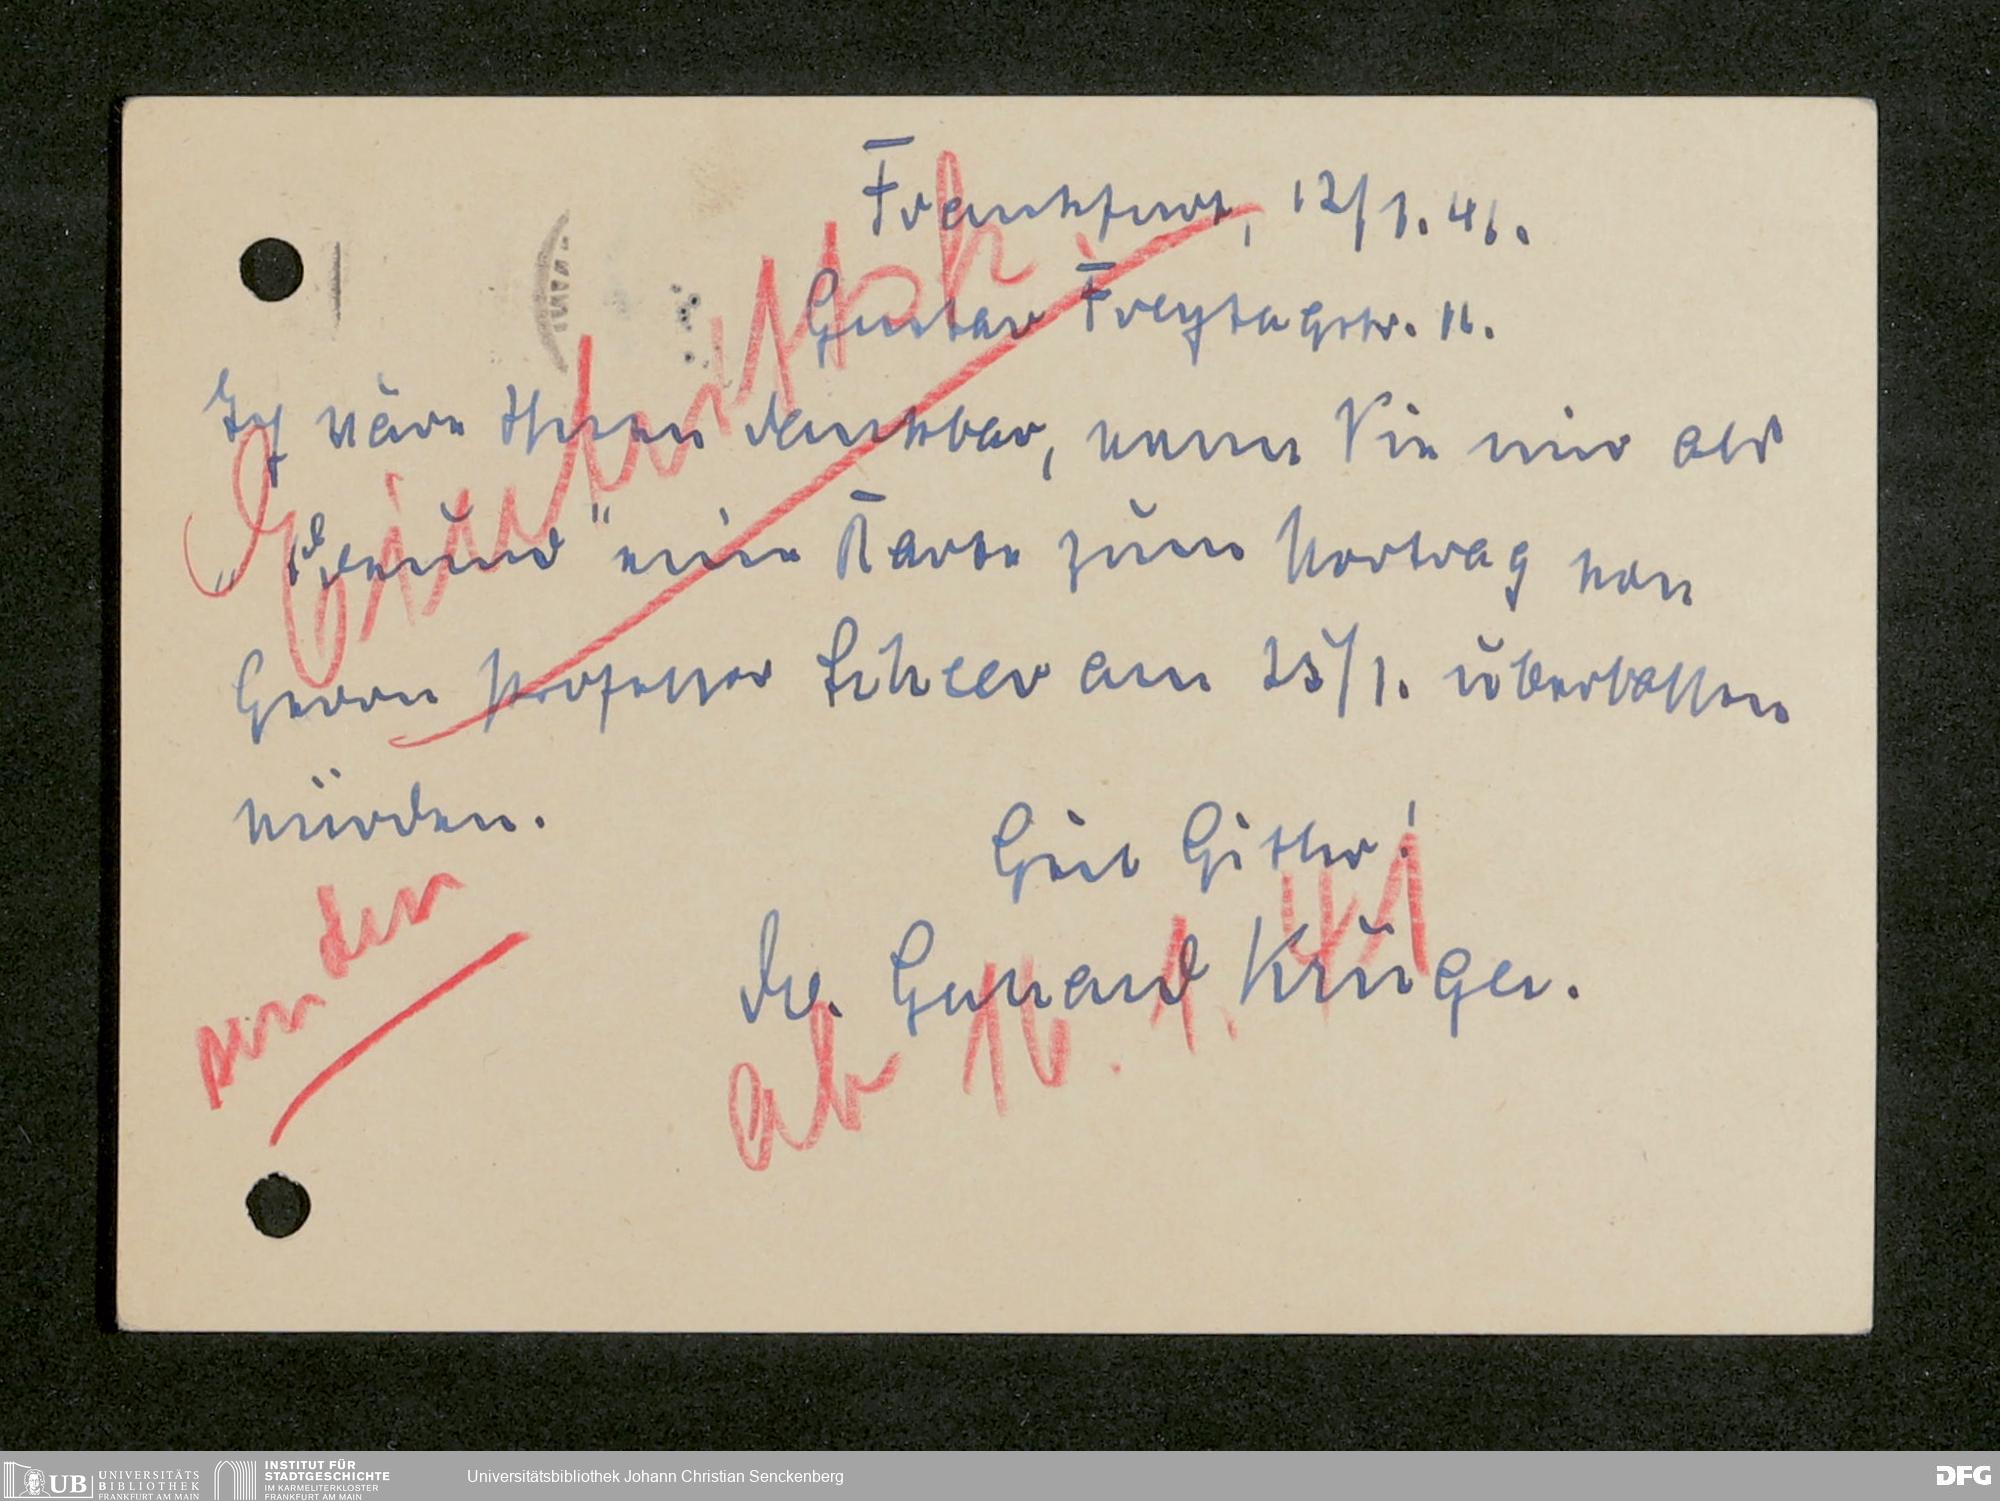 Frankfurt, 12/1.41.
Gustav Freytagstr. 11.
Ich wäre Ihnen dankbar, wenn Sie mir als
„Freund“ eine Karte zum Vortrag von
Herrn Professor Scheer am 25/1. überlassen
würden.
Heil Hitler!
Dr. Krüger.
senden
ab 16.1.41
UB UNIVERSITÄTS
BIBLIOTHEK
FRANKFURT AM MAIN
INSTITUT FÜR
STADTGESCHICHTE
IM KARMELITERKLOSTER
FRANKFURT AM MAIN
Universitätsbibliothek Johann Christian Senckenberg
DFG